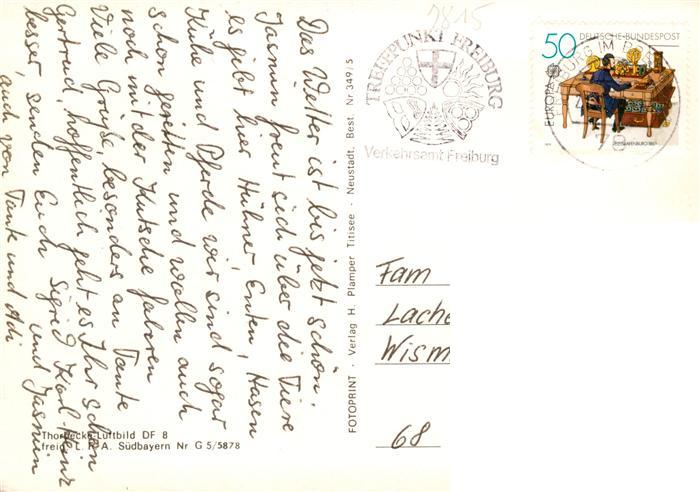 Das Wetter ist bis jetzt schön.
Jasmin freut sich über die Tiere
es gibt hier Hühner, Enten, Hasen
Kühe und Pferde wir sind sogar
schon geritten und wollen auch
noch mit der Kutsche fahren
Viele Grüße, besonders an Tante
Gertrud, hoffentlich geht es Ihr schon
besser, senden Euch Sigrid Karl-Heinz
und Jasmin
auch von Tante und Adi
Thorbecke-Luftbild DF 8
freig. L. P. A. Südbayern Nr G 5/5878
FOTOPRINT · Verlag H. Plamper Titisee · Neustadt, Best. Nr 349/5
7815
TREFFPUNKT FREIBURG
Verkehrsamt Freiburg
50 DEUTSCHE BUNDESPOST
EUROPA
Fam
Lache
Wism
68